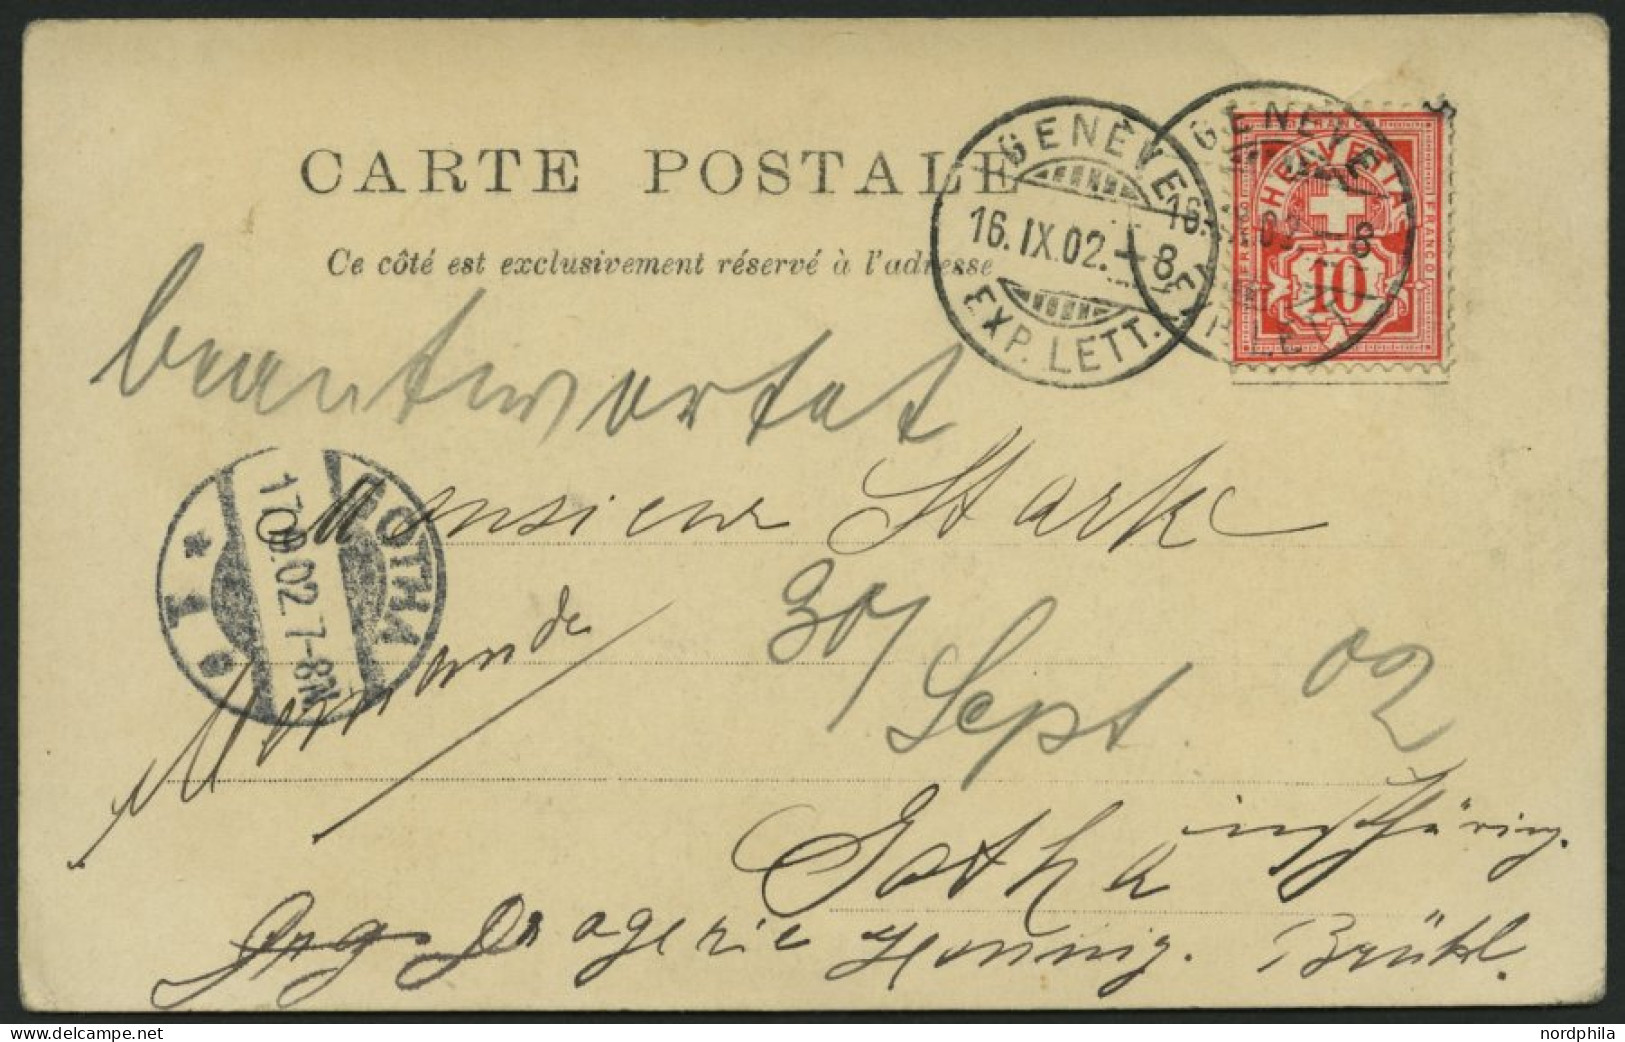 CARTE POSTALE
Ce côté est exclusivement réservé à l'adresse
GENÈVE
16.IX.02.–8
EXP. LETT.
GENÈVE
16. –8
EXP. LETT.
FRANCO
HELVETIA
FRANCO
10
beantwortet
Monsieur Stark
GOTHA
17.9.02.7-8N.
* 1
30/
Sept. 02
Gotha in Thüring.
Drogerie Hennig. Brühl.
delcampe.net
nordphila